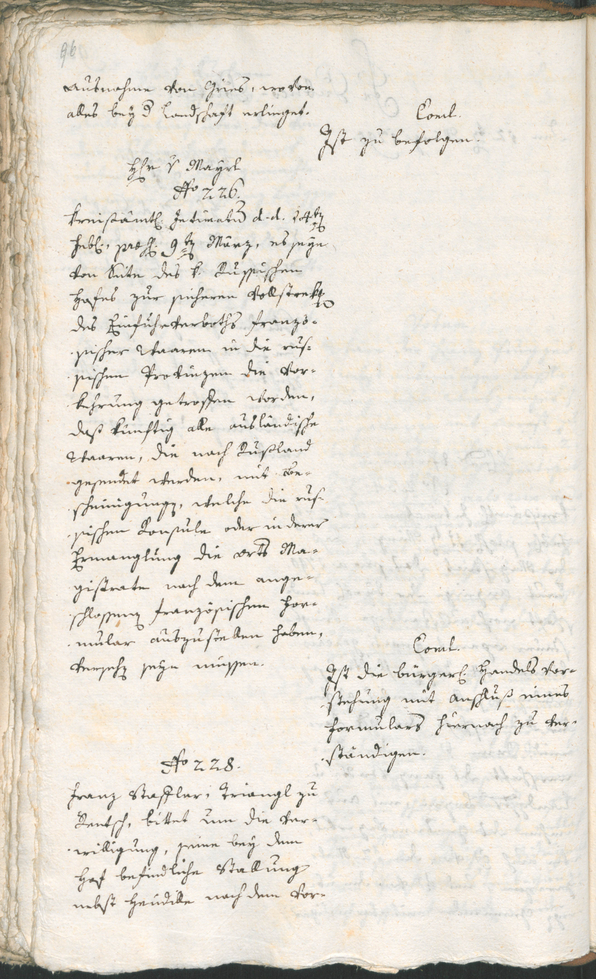 96
Ausnahme von Gries, wovon
alles bey d Landschaft erlinget.
Concl.
Ist zu befolgen.
Hr v Mayrl
No 226.
Kreisämtl. Intimatum d. d. 24ten
Febr. 9ten März, es seye
von Seite des k. Russischen
Hofes zur sicheren Vollstreckg
des Einfuhrverboths franzö-
sischer Waaren in die rus-
sischen Provinzen die Vor-
kehrung getroffen worden,
daß künftig alle ausländische
Waaren, die nach Rußland
gesendet werden, mit Be-
scheinigungen, welche die rus-
sischen Konsuln oder in derer
Ermanglung die Orts Ma-
gistrate nach dem ange-
schlossenen französischen For-
mular auszustellen haben,
versehen seyn müssen.
Concl.
Ist die bürgerl. Handels Vor-
stehung mit Anschluß eines
Formulars hiernach zu ver-
ständigen.
No 228.
Franz Staffler, Triangl zu
Rentsch, bittet um die Ver-
willigung, seine bey dem
Hof befindliche Stallung
nebst Heudille nach dem Vor-